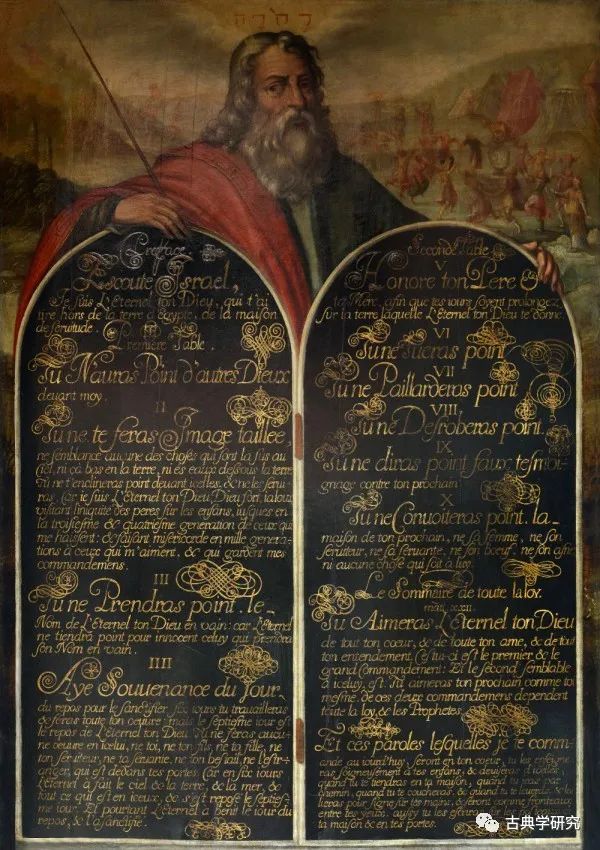 Preface
Escoute Israel,
Je suis L'Eternel ton Dieu, qui t'ai
tire hors de la terre d'Egypte, de la maison
de seruitude.
Premiere Table.
I
Tu N'auras Point d'autres Dieux
deuant moy.
II
Tu ne te feras Image taillee,
ne semblance aucune des choses qui sont la sus au
Ciel, ni ça bas en la terre, ni és eaux dessous la terre
Tu ne t'enclineras point deuant icelles, & ne les serui-
ras. Car ie suis L'Eternel ton Dieu, Dieu fort, ialoux
visitant l'iniquité des peres sur les enfans, iusques en
la troisiesme & quatriesme generation de ceux qui
me haïssent: & faisant misericorde en mille genera-
tions à ceux qui m'aiment, & qui gardent mes
commandemens.
III
Tu ne Prendras point le
Nom de L'Eternel ton Dieu en vain: car L'Eternel
ne tiendra point pour innocent celuy qui prendra
son Nom en vain.
IIII
Aye Souuenance du Jour
du repos pour le sanctifier. Six iours tu travailleras
& feras toute ton oeuure mais le septiesme iour est
le repos de L'Eternel ton Dieu. Tu ne feras aucu-
ne oeuure en icelui, ne toi, ne ton fils, ne ta fille, ne
ton seruiteur, ne ta seruante, ne ton bestail, ne l'estr-
anger, qui est dedans tes portes. Car en six iours
L'Eternel a fait le ciel & la terre, & la mer, &
tout ce qui est en iceux, & s'est reposé le septies-
me iour. Et pourtant L'Eternel a benit le iour du
repos, & l'a sanctifié.
Seconde Table
V
Honore ton Pere &
ta Mere, afin que tes iours soyent prolongez
sur la terre laquelle L'Eternel ton Dieu te donne.
VI
Tu ne Tueras point
VII
Tu ne Paillarderas point
VIII
Tu ne Desroberas point.
IX
Tu ne diras point faux tesmoi-
gnage contre ton prochain
X
Tu ne Conuoiteras point la
maison de ton prochain, ne sa femme, ne son
seruiteur, ne sa seruante, ne son boeuf, ne son asne
ni aucune chose qui soit a luy.
Le Sommaire de toute la loy.
Tu Aimeras L'Eternel ton Dieu
de tout ton coeur, & de toute ton ame, & de tout
ton entendement. Cestui-ci est le premier & le
grand Commandement: Et le second semblable
à iceluy, est, Tu aimeras ton prochain comme toi
mesme. de ces deux commandemens dependent
toute la loy, & les Prophetes.
Et ces paroles lesquelles je te comm-
ande au iourd'huy, seront en ton coeur, tu les enseigne-
ras soigneusement à tes enfans, & deuiseras d'icelles
quand tu te tiendras en ta maison, quand tu iras par
chemin, quand tu te coucheras, & quand tu te leueras, & les
lieras pour signe sur tes mains, & seront comme fronteaux
entre tes yeux. aussy tu les escriras
ta maison & en tes portes.
古典学研究